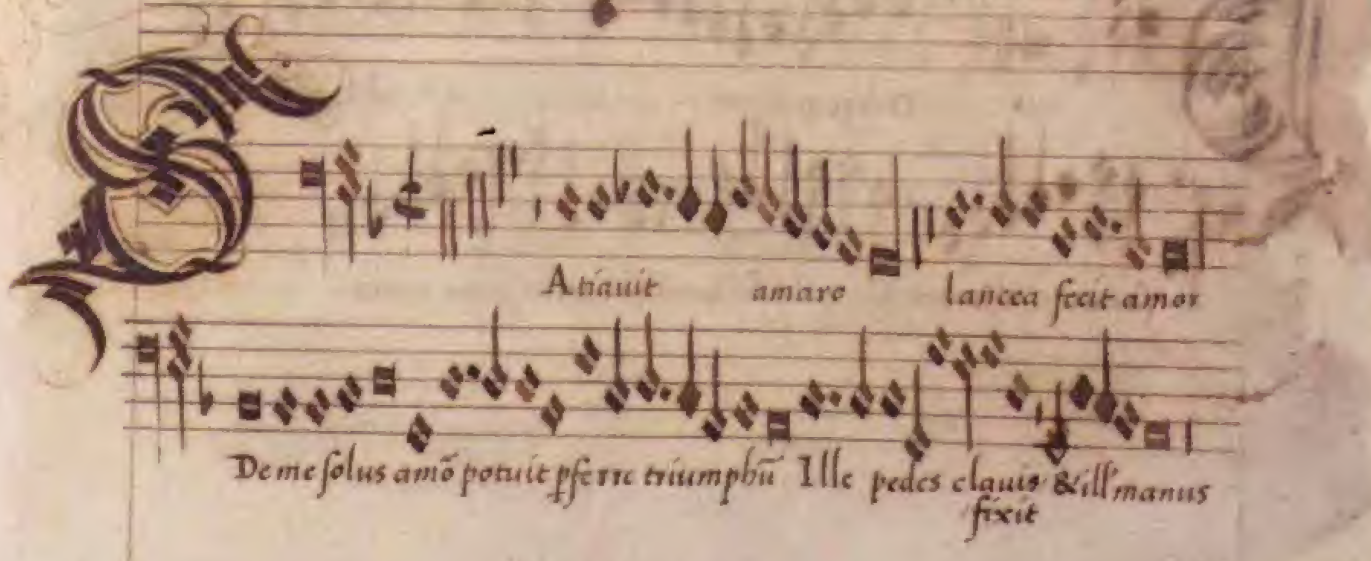 SAtiauit amaro lancea fecit amor
De me solus amō potuit ꝑferre triumphū Ille pedes clauis & ill' manus
fixit